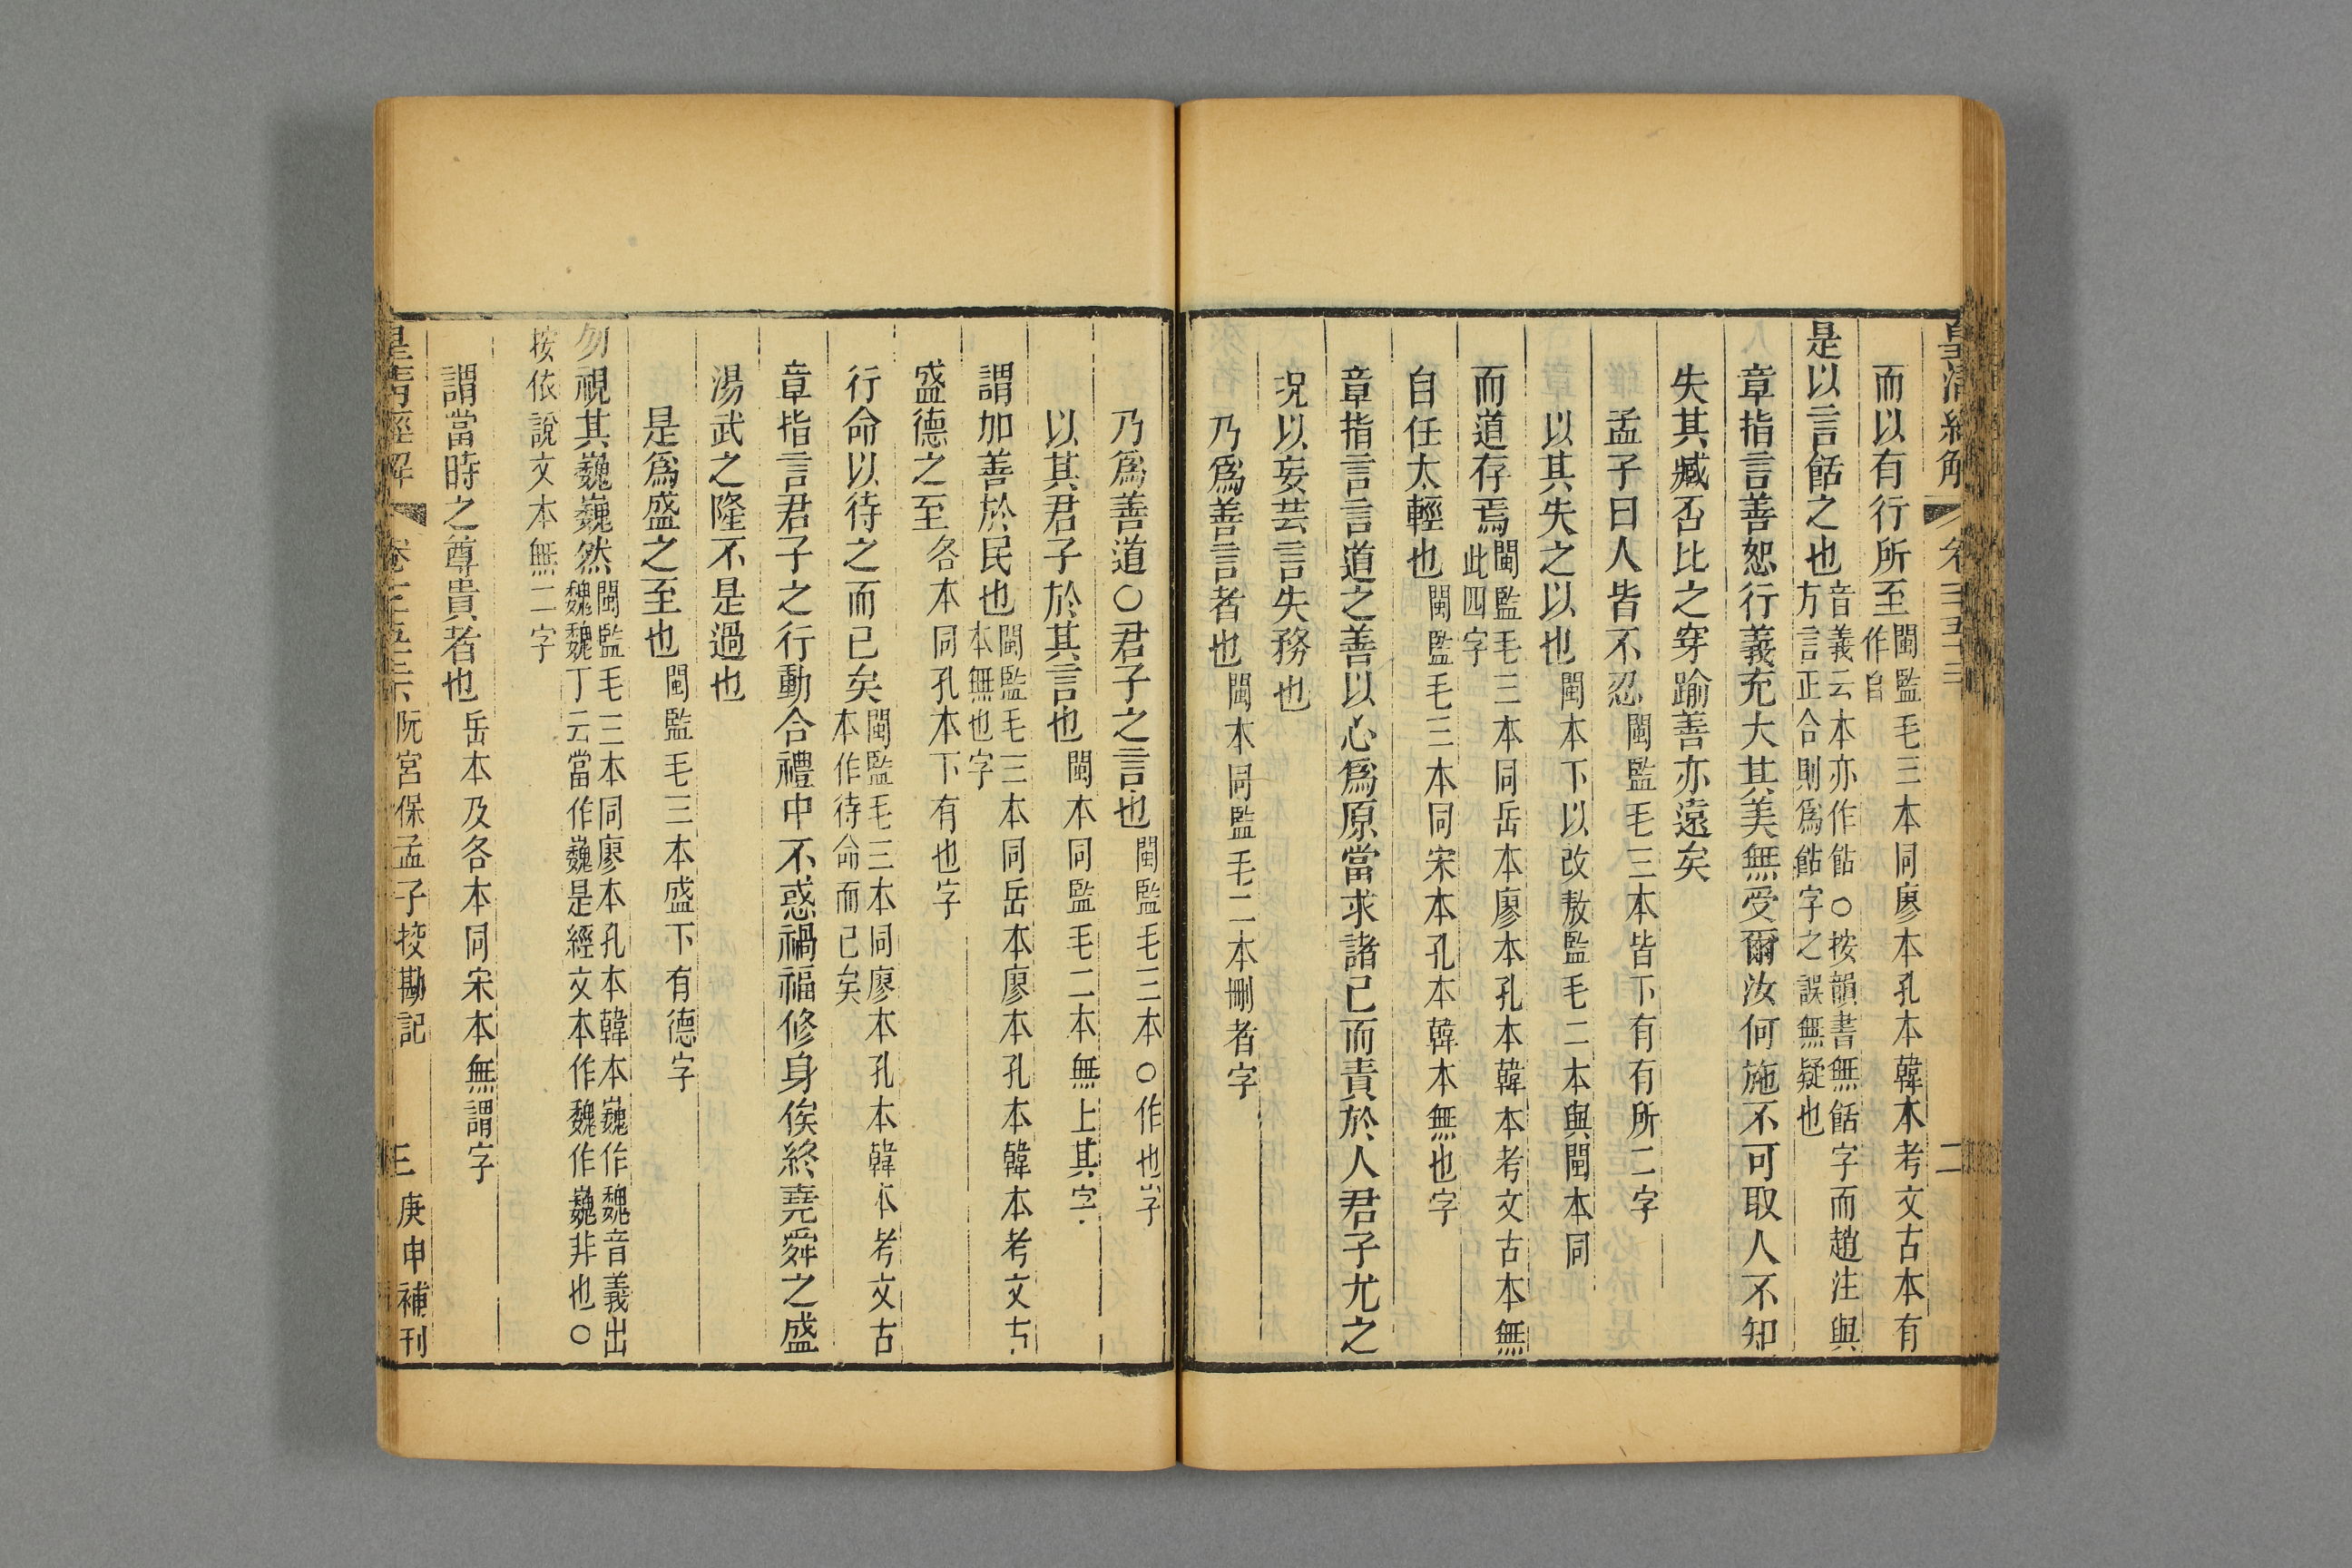 皇清經解 卷
二
而以有行所至閩監毛三本同廖本孔本韓本考文古本有作自
是以言餂之也音義云本亦作飴○按韻書無餂字而趙注與方言正合則爲銛字之誤無疑也
章指言善恕行義充大其美無受爾汝何施不可取人不知
失其臧否比之穿踰善亦遠矣
孟子曰人皆不忍閩監毛三本皆下有有所二字
以其失之以也閩本下以改敖監毛二本與閩本同
而道存焉閩監毛三本同岳本廖本孔本韓本考文古本無此四字
自任太輕也閩監毛三本同宋本孔本韓本無也字
章指言言道之善以心爲原當求諸己而責於人君子尤之
況以妄芸言失務也
乃爲善言者也閩本同監毛二本刪者字
乃爲善道○君子之言也閩監毛三本○作也字
以其君子於其言也閩本同監毛二本無上其字
謂加善於民也閩監毛三本同岳本廖本孔本韓本考文古本無也字
盛德之至各本同孔本下有也字
行命以待之而已矣閩監毛三本同廖本孔本韓本考文古本作待命而已矣
章指言君子之行動合禮中不惑禍福修身俟終堯舜之盛
湯武之隆不是過也
是爲盛之至也閩監毛三本盛下有德字
勿視其巍巍然閩監毛三本同廖本孔本韓本巍作魏音義出魏魏丁云當作巍是經文本作魏作巍非也○
按依說文本無二字
謂當時之尊貴者也岳本及各本同宋本無謂字
皇清經解 卷 阮宮保孟子挍勘記 三 庚申補刊